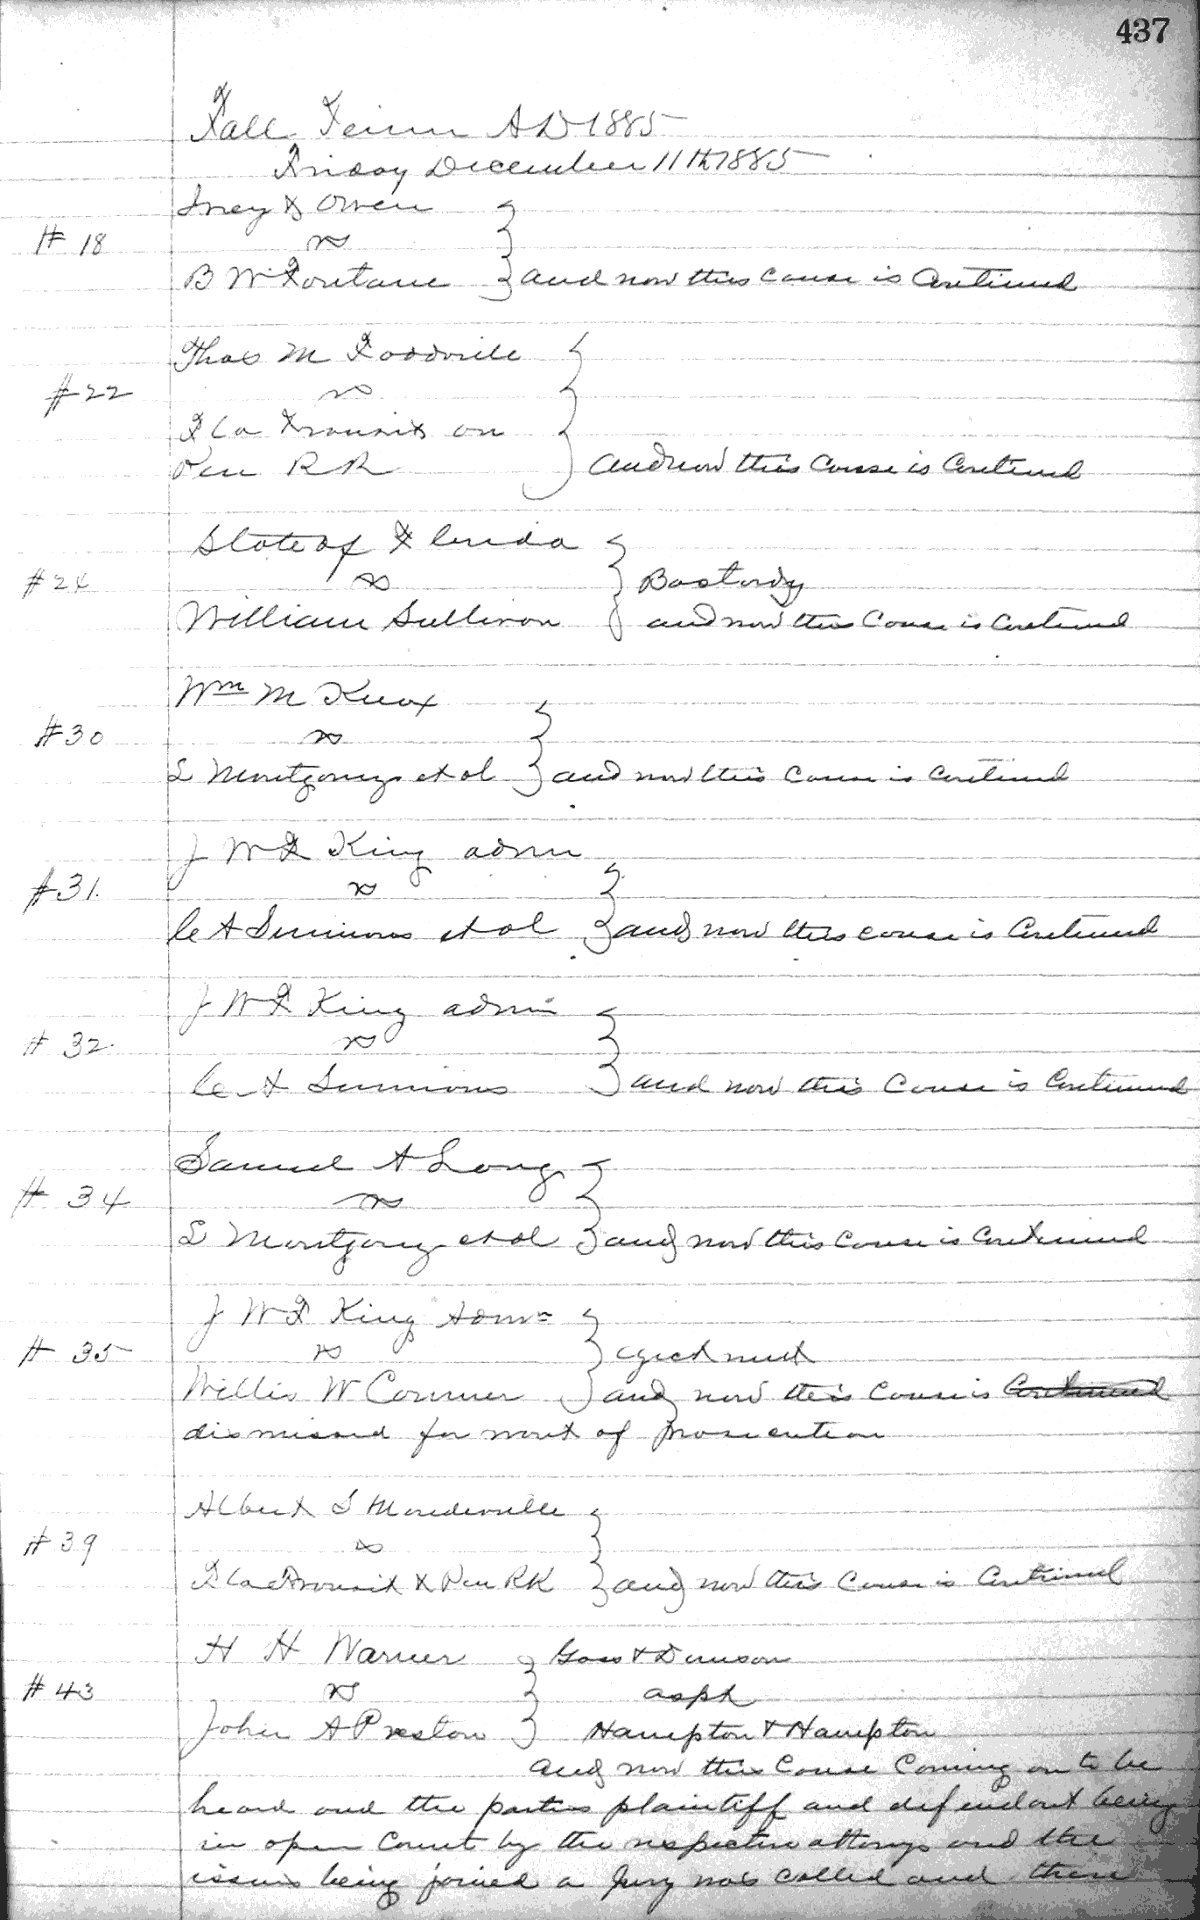 437
Fall Term AD 1885
Friday December 11th 1885
Ivey & Owen
# 18 vs
B W Fontane } and now this cause is Continued
Thos M
#22 vs
Fla Transit
Pen RR } and now this Cause is Continued
State of Florida
#24 vs } Bastardy
William Sullivan and now this Cause is Continued
Wm M Knox
#30 vs
L Montgomery et al } and now this Cause is Continued
J W F King admr
#31. vs
C A Simmons et al } and now this cause is Continued
J W F King admr
# 32 vs
C A Simmons } and now this Cause is Continued
Samuel A Long
# 34 vs
L Montgomery et al } and now this Cause is Continued
J W F King Admr
# 35 vs } Eject ment
Willis W Conner } and now this Cause is Continued
dismissed for want of prosecution
Albert S Mandeville
# 39 vs
Fla Transit & Pen RR } and now this Cause is Continued
H H Warner } Goss &
# 43 vs
John A Preston } Hampton & Hampton
and now this Cause Coming on to be
heard and the parties plaintiff and defendant being
in open Court by the respective attorneys and the
issues being joined a Jury was called and there